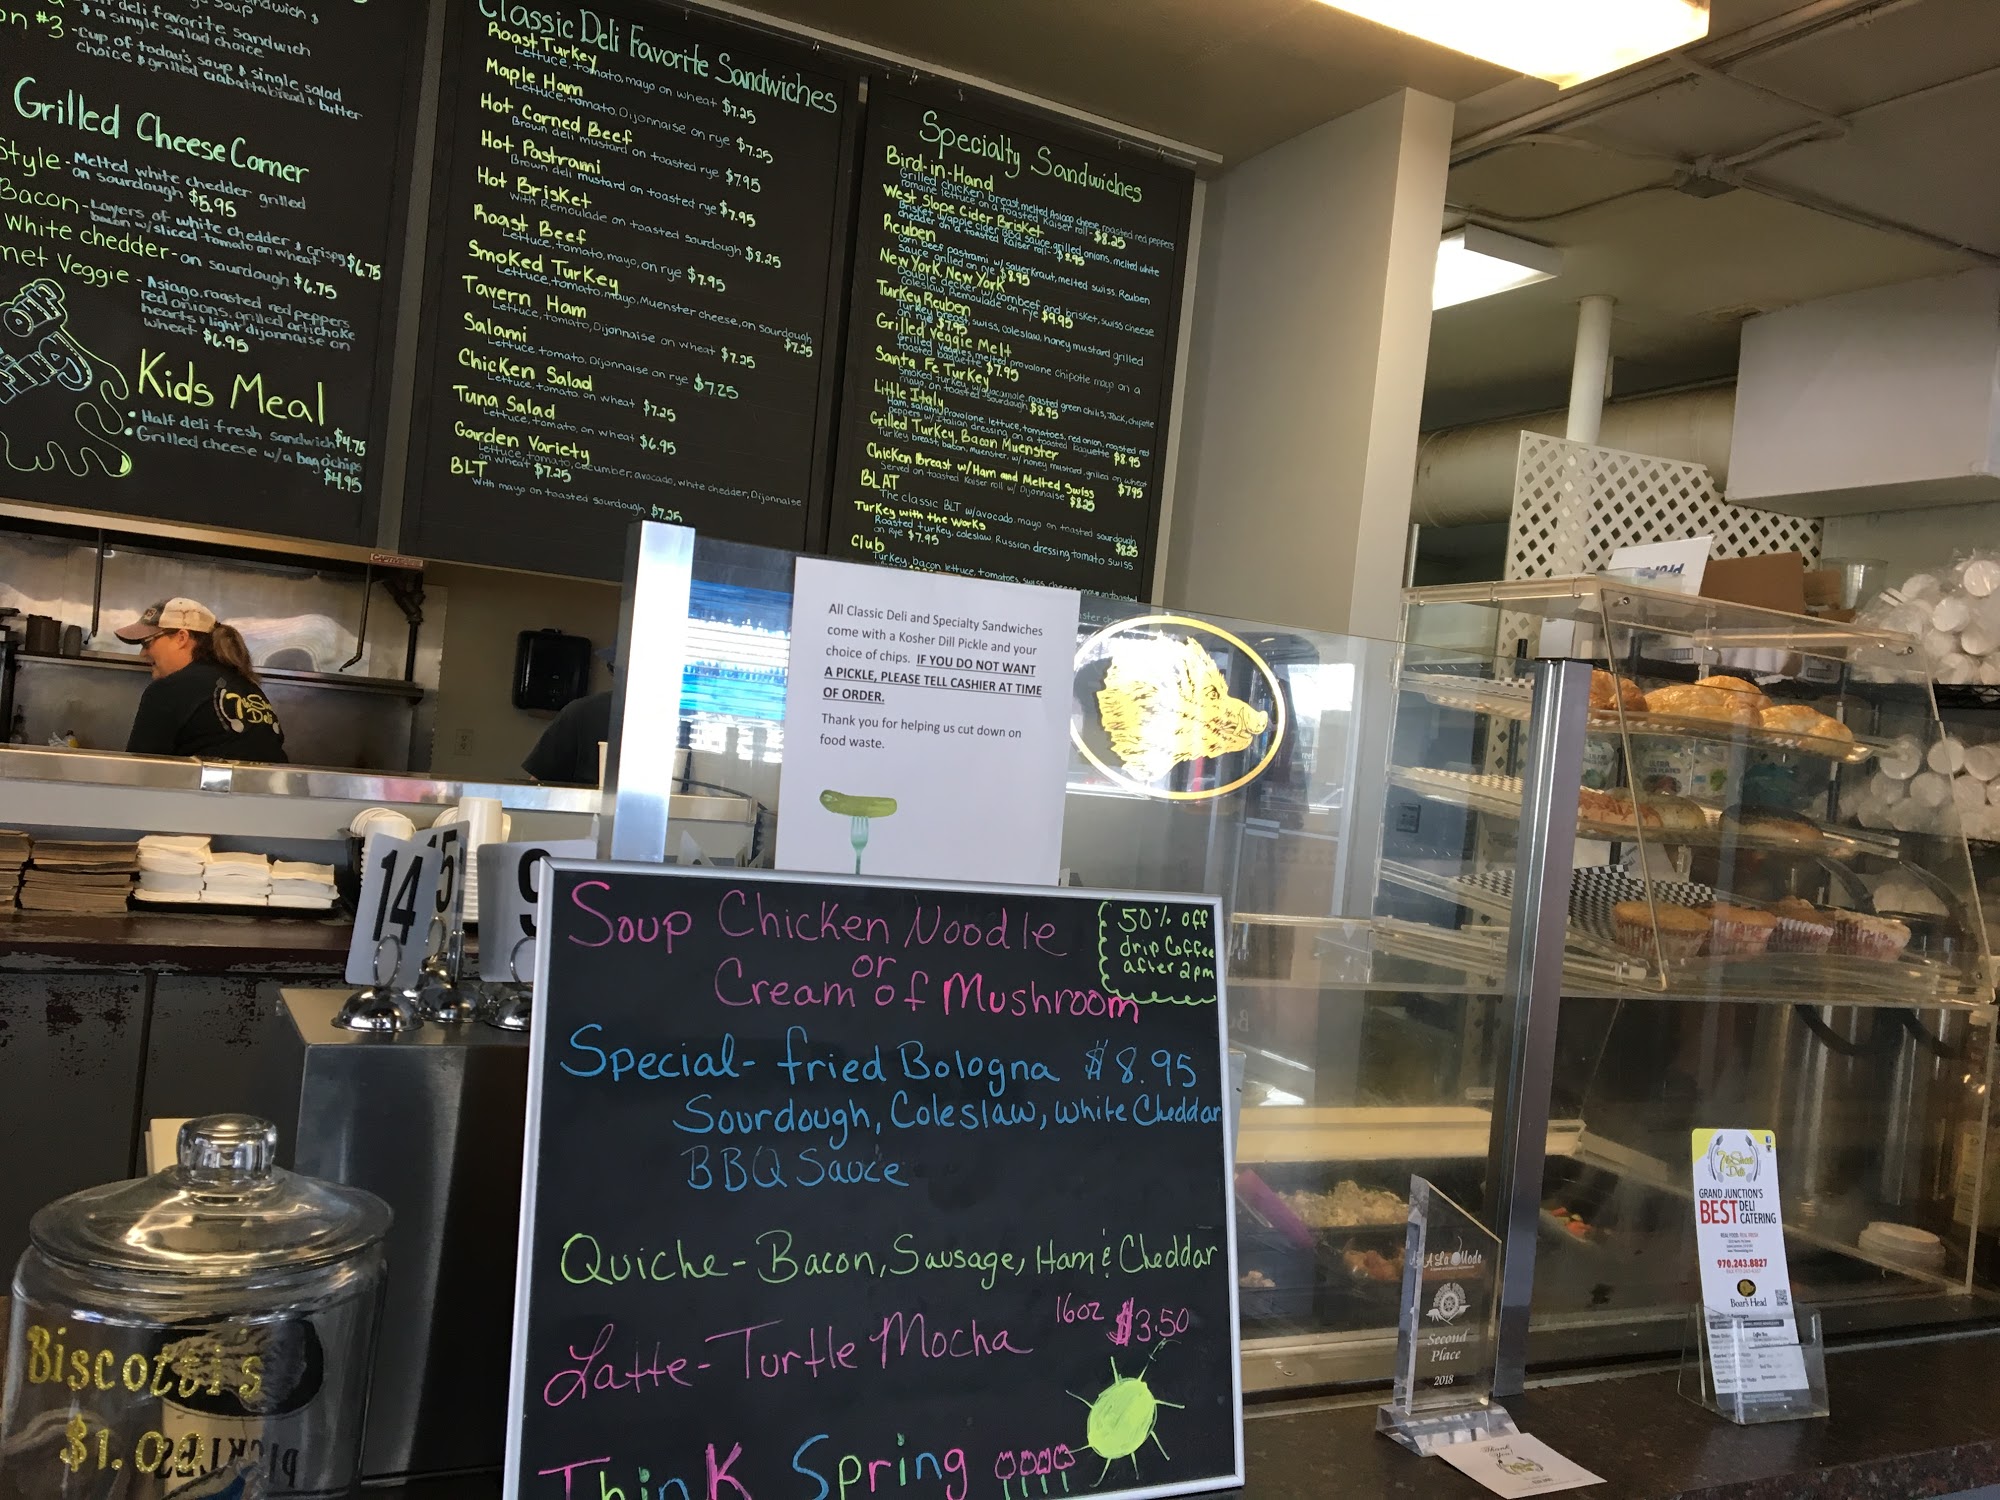 Soup
deli favorite sandwich
& a single salad choice
on #3 - Cup of today's soup & single salad
choice & grilled ciabatta bread & butter
Grilled Cheese Corner
Style - Melted white chedder grilled
on sourdough $5.95
Bacon - Layers of white chedder & Crispy
bacon w/sliced tomato on wheat $6.75
White chedder - on sourdough $6.75
met Veggie - Asiago, roasted red peppers
red onions, grilled artichoke
hearts & light dijonnaise on
wheat $6.95
Kids Meal
• Half deli fresh sandwich $4.75
• Grilled cheese w/a bag o' chips
$4.95
Classic Deli Favorite Sandwiches
Roast Turkey
Lettuce, tomato, mayo on wheat $7.25
Maple Ham
Lettuce, tomato, Dijonnaise on rye $7.25
Hot Corned Beef
Brown deli mustard on toasted rye $7.95
Hot Pastrami
Brown deli mustard on toasted rye $7.95
Hot Brisket
with Remoulade on toasted sourdough $8.25
Roast Beef
Lettuce, tomato, mayo, on rye $7.95
Smoked Turkey
Lettuce, tomato, mayo, Muenster cheese, on sourdough
$7.25
Tavern Ham
Lettuce, tomato, Dijonnaise on wheat $7.25
Salami
Lettuce, tomato, Dijonnaise on rye $7.25
Chicken Salad
Lettuce, tomato, on wheat $7.25
Tuna Salad
Lettuce, tomato, on wheat $6.95
Garden Variety
Lettuce, tomato, cucumber, avocado, white chedder, Dijonnaise
on wheat $7.25
BLT
With mayo on toasted sourdough $7.25
Specialty Sandwiches
Bird-in-Hand
Grilled chicken breast, melted Asiago cheese, roasted red peppers
romaine lettuce on a toasted Kaiser roll - $8.25
West Slope Cider Brisket
Brisket w/apple cider BBQ sauce, grilled onions, melted white
chedder on a toasted Kaiser roll - $8.95
Reuben
Corn beef pastrami w/ sauerkraut, melted swiss, Reuben
sauce grilled on rye $8.95
New York, New York
Double decker w/ cornbeef and brisket, swiss cheese
coleslaw, Remoulade on rye $9.95
Turkey Reuben
Turkey breast, swiss, coleslaw, honey mustard grilled
on rye $7.95
Grilled Veggie Melt
Grilled veggies, melted provolone chipotle mayo on a
toasted baguette $7.95
Santa Fe Turkey
Smoked turkey, w/guacamole, roasted green chilis, Jack, chipotle
mayo, on toasted sourdough $8.95
Little Italy
Ham, salami, Provolone, lettuce, tomatoes, red onion, roasted red
peppers w/ Italian dressing on a toasted baguette $8.95
Grilled Turkey, Bacon Muenster
Turkey breast, bacon, Muenster, w/ honey mustard, grilled on wheat
$7.95
Chicken Breast w/Ham and Melted Swiss
Served on toasted Kaiser roll w/ Dijonnaise $8.25
BLAT
The classic BLT w/avocado, mayo on toasted sourdough
$8.25
Turkey with the Works
Roasted turkey, coleslaw Russian dressing, tomato swiss
on Rye $7.95
Club
Turkey, bacon, lettuce, tomatoes, swiss cheese, mayo on toasted
7th Street
Deli
All Classic Deli and Specialty Sandwiches
come with a Kosher Dill Pickle and your
choice of chips. IF YOU DO NOT WANT
A PICKLE, PLEASE TELL CASHIER AT TIME
OF ORDER.
Thank you for helping us cut down on
food waste.
14
5
9
Soup Chicken Noodle
or
Cream of Mushroom
50% off
drip Coffee
after 2pm
Special - fried Bologna $8.95
Sourdough, Coleslaw, white Cheddar
BBQ Sauce
Quiche - Bacon, Sausage, Ham & Cheddar
Latte - Turtle Mocha 16oz $3.50
Think Spring
Biscotti's
$1.00
PICKLES
A La Mode
Second
Place
2018
7th Street
Deli
GRAND JUNCTION'S
BEST DELI
CATERING
REAL FOOD. REAL FRESH.
970.243.8827
Boar's Head
Thank
You!